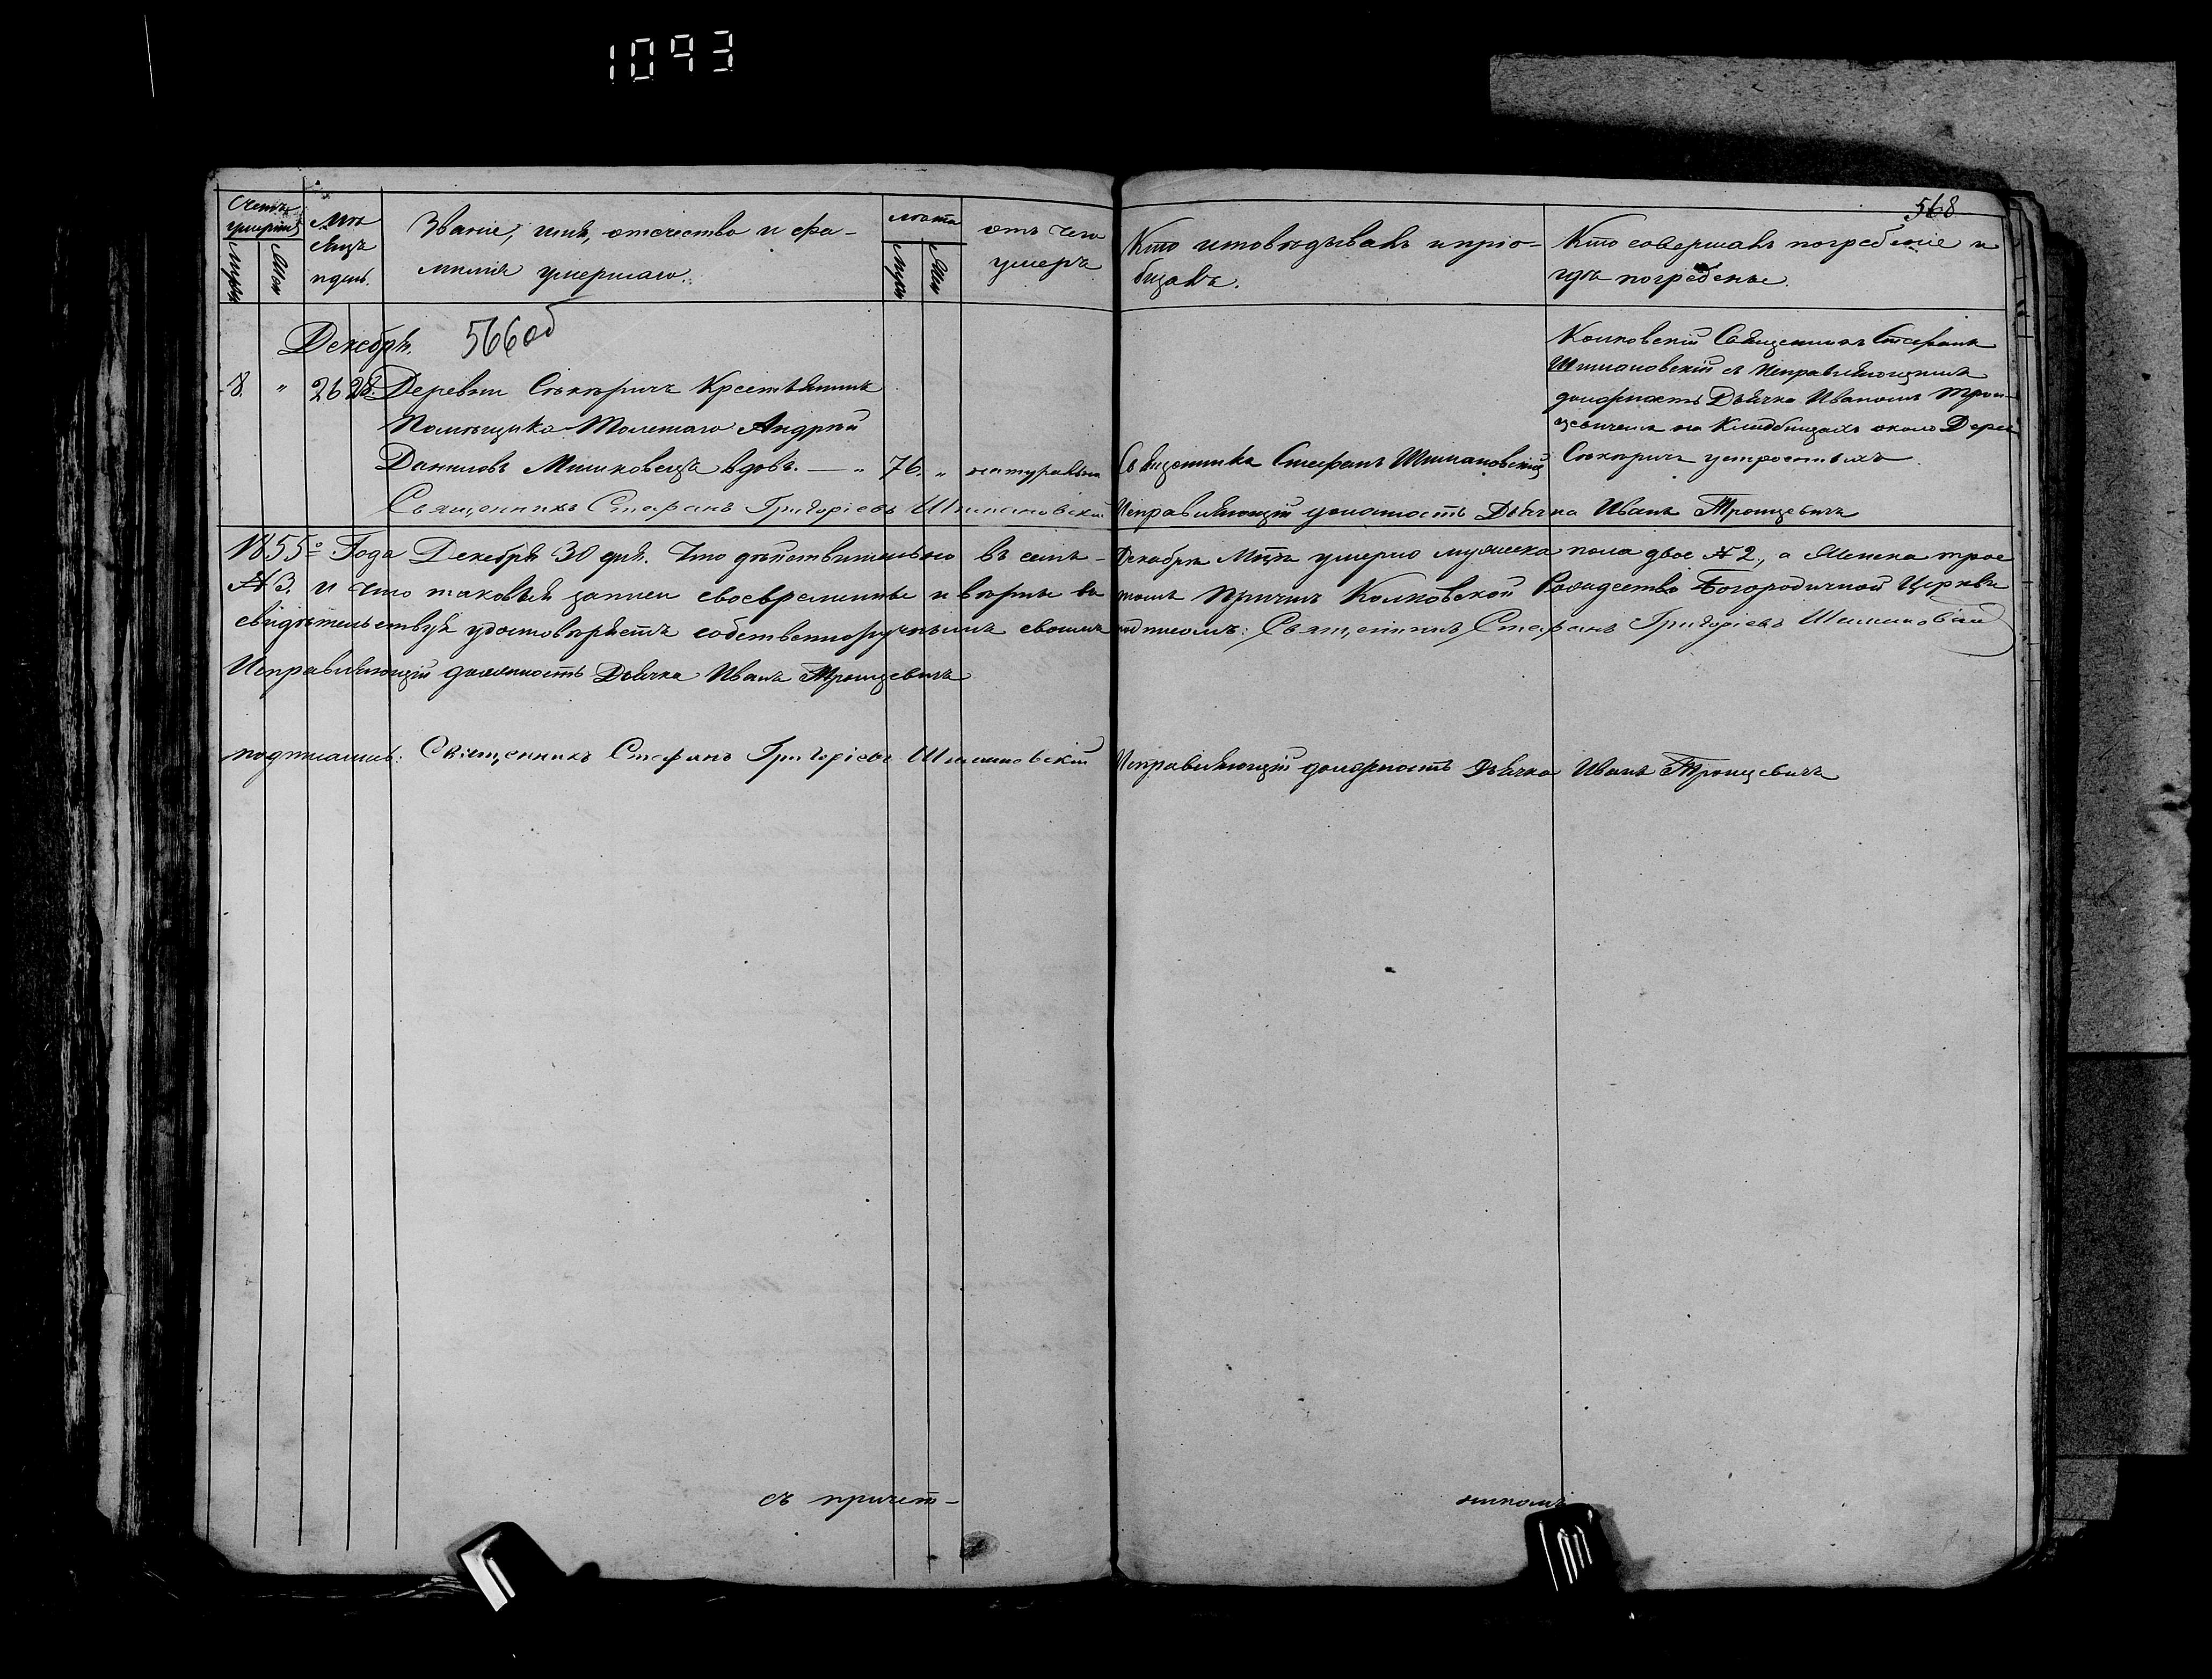 1093
568
Счетъ умершихъ
Муж. Жен.
Мѣсяцъ и день.
Званіе, имя, отечество и фа-
милія умершаго.
лѣта
Муж. Жен.
отъ чего
умеръ
Кто исповѣдывалъ и прiо-
бщалъ.
Кто совершалъ погребеніе и
гдѣ погребены.
Декабрь. 566 об
8. " 26 28. Деревни Крестьянинъ
Помѣщика Андрей
Даниловъ Мишковецъ вдовъ. — " 76. " натуральна
Священникъ Стефанъ Шимановскій
Колковскій Священникъ Стефанъ
Шимановскій съ Исправляющимъ
должность Дьячка Иваномъ Трои-
цевичемъ на Кладбищахъ около Дерев
Священникъ Стефанъ Григоріевъ Шимановскій Исправляющій должность Дьячка Иванъ Троицевичъ
1855го Года Декабря 30 дня. Что дѣйствительно въ семъ - Декабрѣ Мцѣ умерло мужеска пола двое № 2, а Женска трое
№ 3. и что таковыя записи своевременны и вѣрны въ томъ Причтъ Колковской Рождество Богородичной Церкви
свидѣтельствуя удостовѣряетъ собственноручнымъ своимъ подписомъ: Священникъ Стефанъ Григоріевъ Шимановскій
Исправляющій должность Дьячка Иванъ Троицевичъ
подписались: Священникъ Стефанъ Григоріевъ Шимановскій Исправляющій должность Дьячка Иванъ Троицевичъ
съ причет- никомъ